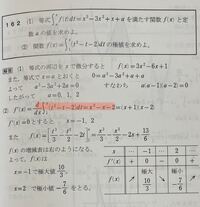 162 (1) 等式∫ₐˣ f(t)dt=x³-3x²+x+a を満たす関数 f(x) と定
数 a の値を求めよ。
(2) 関数 f(x)=∫ (t²-t-2)dt の極値を求めよ。
解答 (1) 等式の両辺を x で微分すると f(x)=3x²-6x+1
また，等式で x=a とおくと 0=a³-3a²+a+a
よって a³-3a²+2a=0 すなわち a(a-1)(a-2)=0
したがって a=0, 1, 2
(2) f'(x)=d/dx∫(t²-t-2)dt=x²-x-2=(x+1)(x-2)
f'(x)=0 とすると x=-1, 2
また f(x)=[t³/3-t²/2-2t]=x³/3-x²/2-2x+13/6
f(x) の増減表は右のようになる。
よって
x=-1 で極大値 10/3,
x=2 で極小値 -7/6 をとる。
x … -1 … 2 …
f'(x) + 0 - 0 +
f(x) ↗ 極大 10/3 ↘ 極小 -7/6 ↗